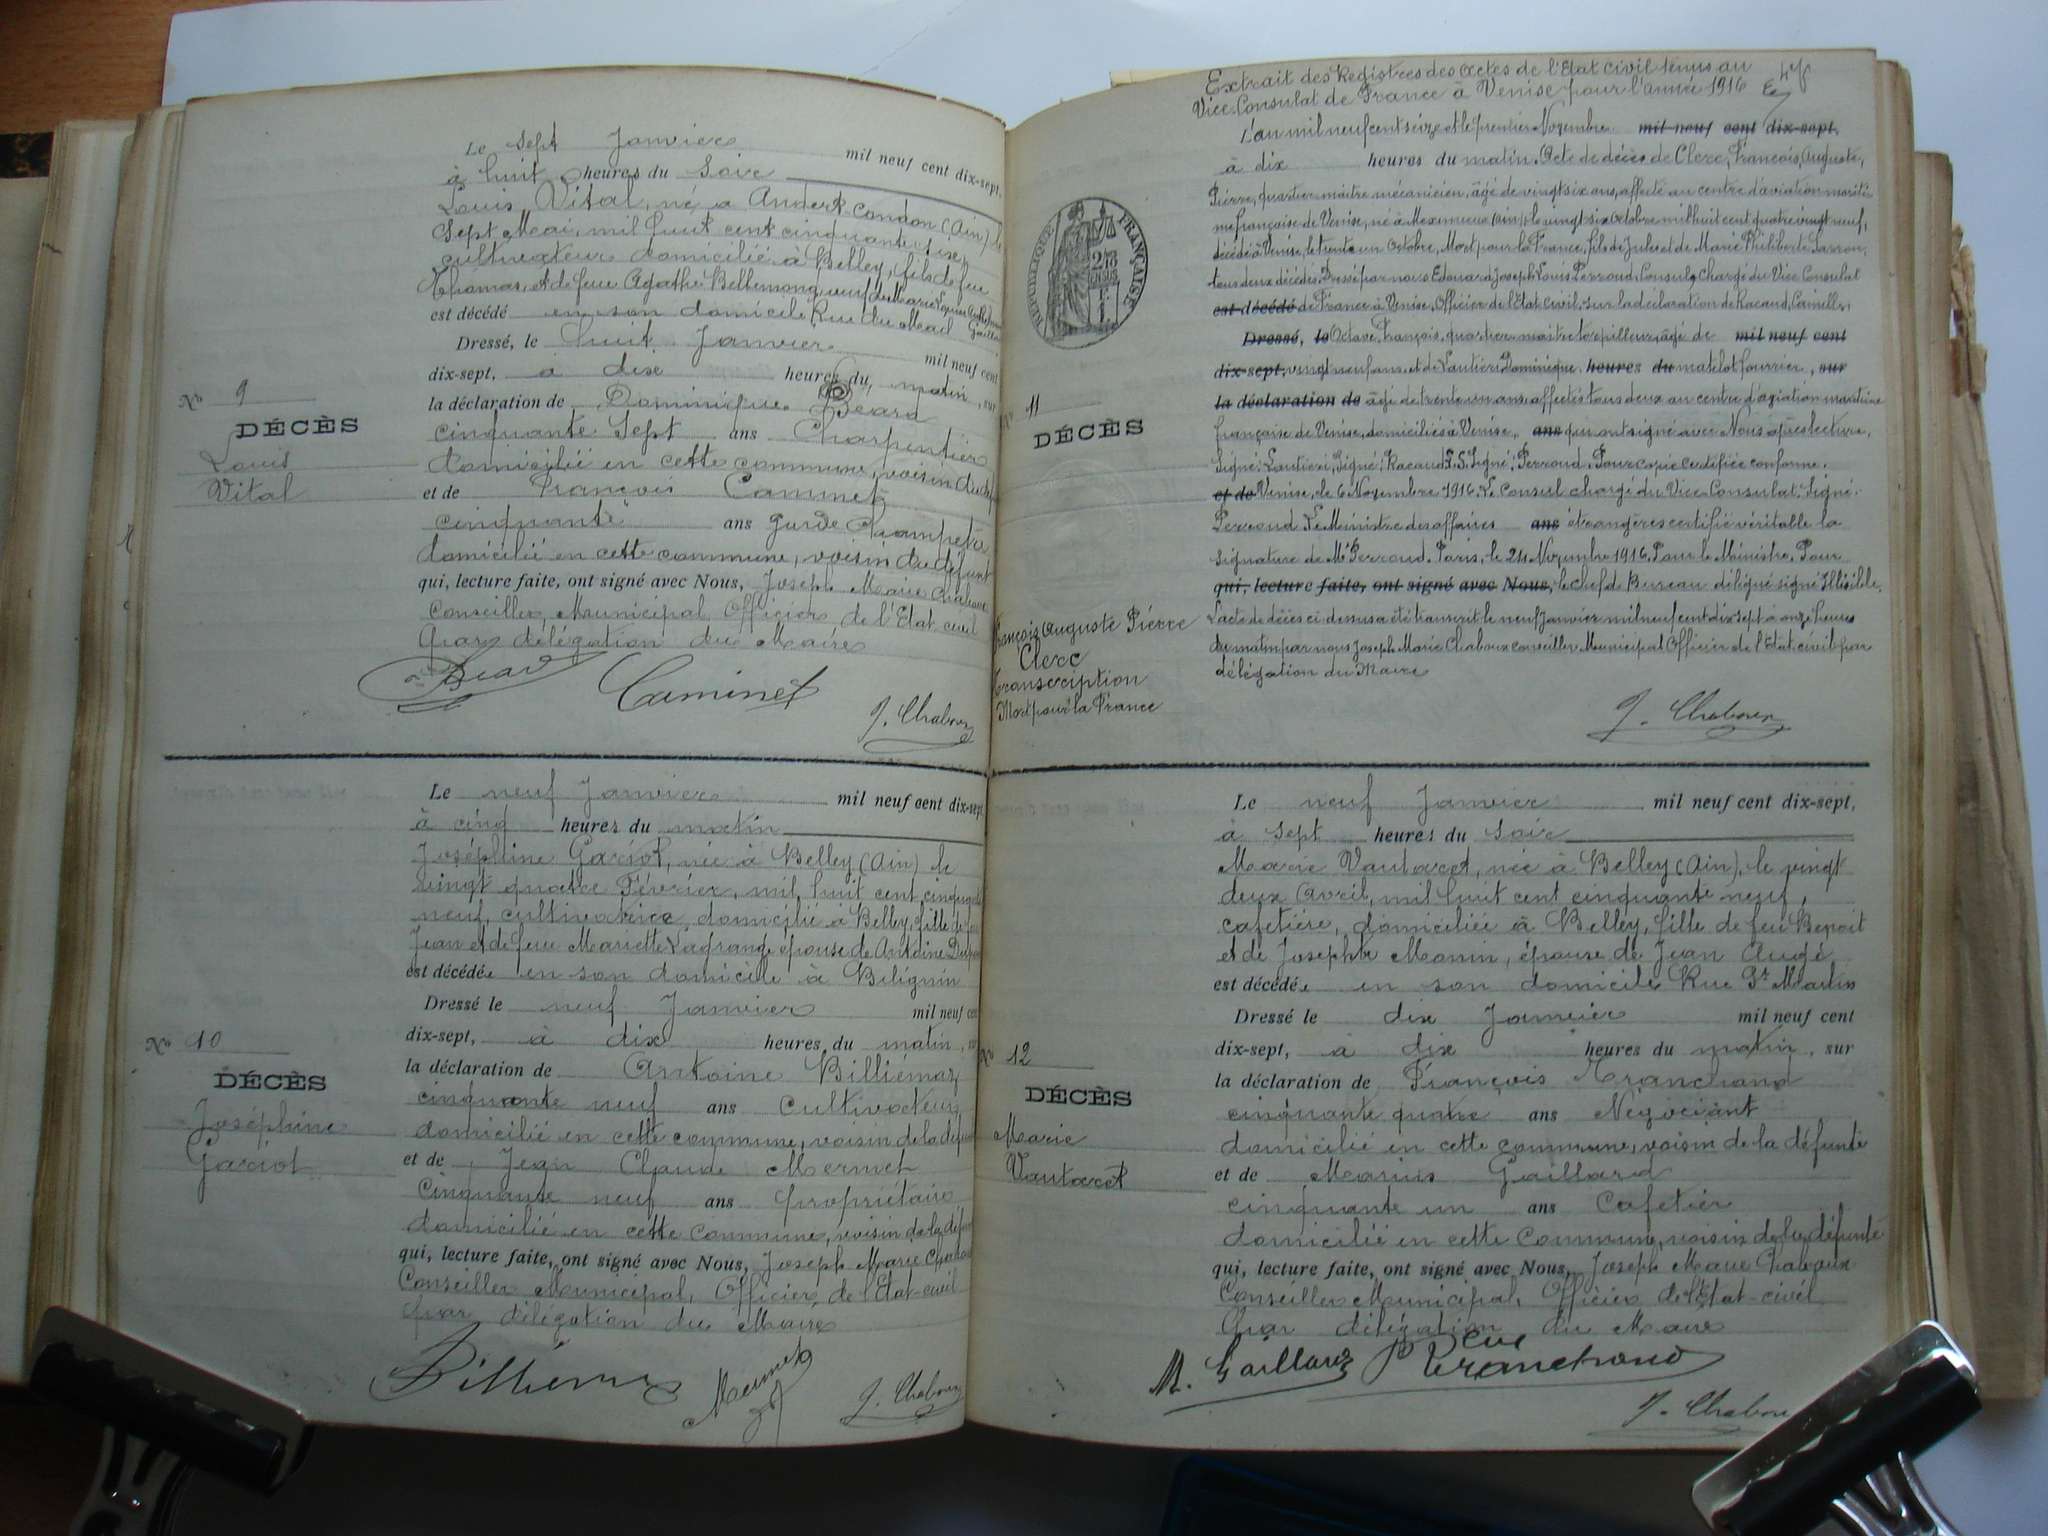 Le sept Janvier mil neuf cent dix-sept,
à huit heures du Soir
Louis Vital, né à Andert-Condon (Ain) le
Sept Mai, mil huit cent cinquante six,
cultivateur domicilié à Belley, fils de feu
Thomas, et de feue Agathe Bellemang, veuf de Marie Louise
est décédé en son domicile, Rue du Mail
Dressé, le huit Janvier mil neuf cent
dix-sept, à dix heures du matin, sur
No 9
la déclaration de Dominique Beard
DÉCÈS
cinquante Sept ans Charpentier
Louis
domicilié en cette commune, voisin du défunt
Vital
et de François Caminet
cinquante ans Garde Champêtre
domicilié en cette commune, voisin du défunt
qui, lecture faite, ont signé avec Nous, Joseph Marie Chaboux
Conseiller Municipal Officier de l'Etat-civil
par délégation du Maire
Beard Caminet
J. Chaboux
Le neuf Janvier mil neuf cent dix-sept,
à cinq heures du matin
Joséphine Gariot, née à Belley (Ain) le
vingt quatre Février, mil huit cent cinquante
neuf, cultivatrice, domicilié à Belley, fille de feu
Jean et de feue Mariette Lagrange épouse de Antoine
est décédée en son domicile à Billignin
Dressé le neuf Janvier mil neuf cent
dix-sept, à dix heures du matin, sur
No 10
la déclaration de Antoine Billiémaz
DÉCÈS
cinquante neuf ans Cultivateur
Joséphine
domicilié en cette commune, voisin de la défunte
Gariot
et de Jean Claude Mermet
Cinquante neuf ans propriétaire
domicilié en cette commune, voisin de la défunte
qui, lecture faite, ont signé avec Nous, Joseph Marie Chaboux
Conseiller Municipal, Officier de l'Etat-civil
par délégation du Maire
Billiémaz Mermet J. Chaboux
Extrait des Registres des Actes de l'Etat civil tenus au
Vice-Consulat de France à Venise pour l'année 1916
L'an mil neuf cent seize et le premier Novembre mil neuf cent dix-sept,
à dix heures du matin. Acte de décès de Clerc, François, Auguste,
Pierre, quartier maître mécanicien, âgé de vingt six ans, affecté au centre d'aviation mariti-
me française de Venise, né à Meximieux (Ain) le vingt six Octobre mil huit cent quatre vingt neuf,
décédé à Venise, le trente un Octobre, Mort pour la France, fils de Jules et de Marie Philiberte Sarron,
tous deux décédés. Dressé par nous Edouard Joseph Louis Perroud, Consul, Chargé du Vice Consulat
est décédé de France à Venise, Officier de l'Etat civil, sur la déclaration de Racaud, Camille,
RÉPUBLIQUE FRANÇAISE
Dressé, le Octave, François, quartier maître torpilleur, âgé de mil neuf cent
dix-sept, vingt neuf ans, et de Lautieri Dominique heures du matelot fourrier, sur
No 11
la déclaration de âgé de trente un ans affectés tous deux au centre d'aviation maritime
DÉCÈS
française de Venise, domiciliés à Venise, ans qui ont signé avec Nous après lecture.
Signé: Lautieri, Signé: Racaud. L.S. Signé: Perroud. Pour copie certifiée conforme.
et de Venise, le 6 Novembre 1916. Le Consul chargé du Vice-Consulat. Signé:
Perroud. Le Ministre des affaires ans étrangères certifie véritable la
signature de Mr Perroud. Paris, le 24 Novembre 1916. Pour le Ministre, Pour
qui, lecture faite, ont signé avec Nous, le chef de Bureau délégué signé Illisible.
François Auguste Pierre
L'acte de décès ci-dessus a été transcrit le neuf Janvier mil neuf cent dix sept à onze heures
Clerc
du matin par nous Joseph Marie Chaboux conseiller Municipal Officier de l'Etat civil par
Transcription
délégation du Maire
Mort pour la France
J. Chaboux
Le neuf Janvier mil neuf cent dix-sept,
à sept heures du soir
Marie Vautaret, née à Belley (Ain), le vingt
deux Avril, mil huit cent cinquante neuf,
cafetière, domiciliée à Belley, fille de feu Benoit
et de Josephte Monin, épouse de Jean Augé
est décédée en son domicile Rue St Martin
Dressé le dix Janvier mil neuf cent
dix-sept, à dix heures du matin, sur
No 12
la déclaration de François Tranchand
DÉCÈS
cinquante quatre ans Négociant
Marie
domicilié en cette commune, voisin de la défunte
Vautaret
et de Marius Gaillard
cinquante un ans Cafetier
domicilié en cette Commune, voisin de la défunte
qui, lecture faite, ont signé avec Nous, Joseph Marie Chaboux
Conseiller Municipal, Officier de l'Etat-civil
par délégation du Maire
M. Gaillard Tranchand
J. Chaboux